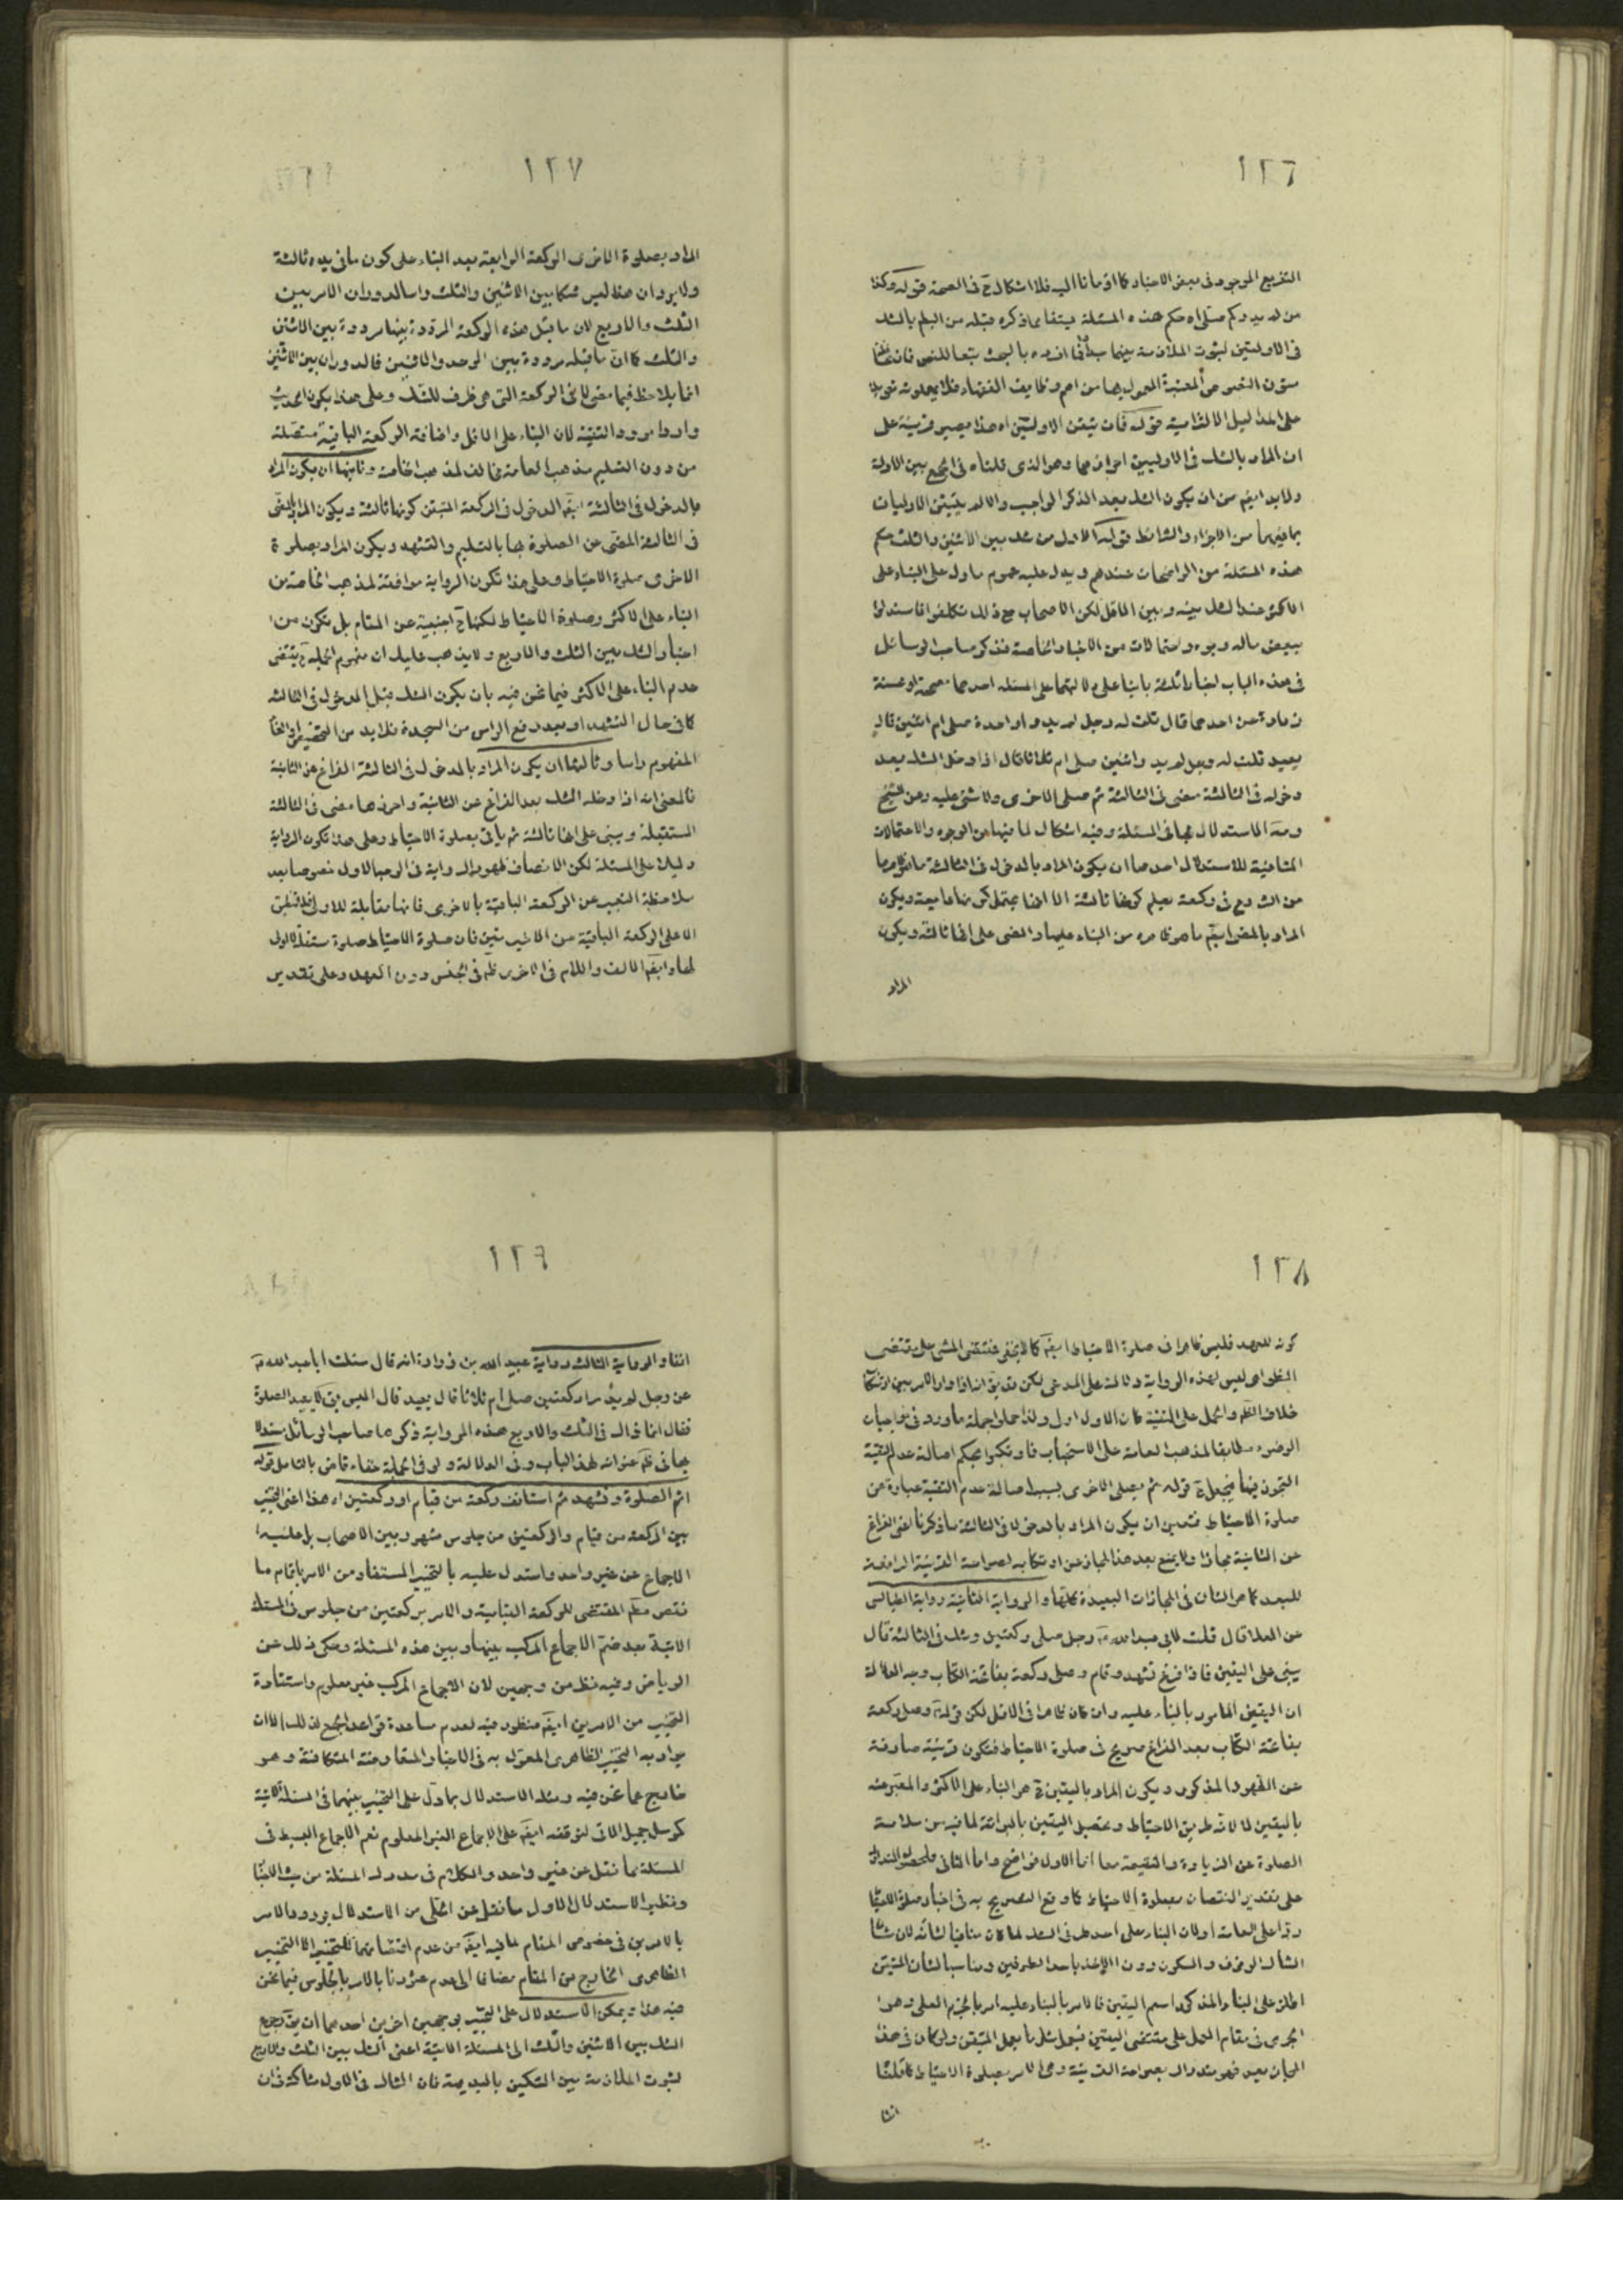 ١٢٦
التفريع الموجود في بعض الاخبار كما اومأنا اليه فلا اشكال ح في الصحة قوله وكذا
من لم يدر كم صلى اه حكم هذه المسئلة يستفاد مما ذكره قبله من العلم بالشك
في الاوليتين لثبوت الملازمة بينهما
متون النصوص المعتبرة المعمول بها من اهم وظايف الفقهاء فلا
على الدليل قوله فان تيقن الاوليتين اه هذا يصير قرينة على
ان المراد بالشك في الاوليين وهو الذي قلناه في الجمع بين الادلة
ولا بد ايضا من ان يكون الشك بعد الذكر الواجب والا لم يتيقن الاوليات
بما فيهما من الاجزاء والشرائط قوله الاول من شك بين الاثنين والثلث حكم
هذه المسئلة من الواضحات عندهم ويدل عليه عموم ما دل على البناء على
الاكثر عند الشك بينه وبين الاقل لكن الاصحاب مع ذلك تكلفوا فاستدلوا
ببعض ماله وجوه واحتمالات من الاخبار الخاصة فذكر صاحب الوسائل
في هذه الباب اخبارا ثلثة بانيا على دلالتها على المسئلة احدها صحيحة او حسنة
زرارة عن احدهما قال قلت له رجل لم يدر واحدة صلى ام اثنتين قال
يعيد قلت له رجل لم يدر اثنتين صلى ام ثلاثا فقال اذا دخل الشك بعد
دخوله في الثالثة مضى في الثالثة ثم صلى الاخرى ولا شئ عليه وعن الشيخ
الاستدلال بها في المسئلة وفيه اشكال لما فيها من الوجوه والاحتمالات
المنافية للاستدلال احدها ان يكون المراد بالدخول في الثالثة ما هو ظاهرها
من الشروع في ركعة يعلم كونها ثالثة الا انها يحتمل كونها رابعة ويكون
المراد بالمضي ايضا ما هو ظاهره من البناء عليها والمضى على انها ثالثة ويكون
المراد
١٢٧
المراد بصلوة الاخرى الركعة الرابعة بعد البناء على كون ما في يده ثالثة
ولا يرد ان هذا ليس شكا بين الاثنين والثلث وانما الدوران الامر بين
الثلث والاربع لان ما قبل هذه الركعة المرددة بينهما مرددة بين الاثنتين
والثلث كما ان ما قبله مرددة بين الوحد والاثنين فالدوران بين الاثنين
انما يلاحظ فيما مضى لا في الركعة التى هي ظرف للشك وعلى هذا يكون الحديث
واردا مورد التقية لان البناء على الاقل واضافة الركعة الباقية متصلة
من دون التسليم مذهب العامة مخالف لمذهب الخاصة وثانيها ان يكون المراد
بالدخول في الثالثة ايضا الدخول في الركعة المتيقن كونها ثالثة ويكون المراد بالمضى
في الثالثة المضى عن الصلوة بها بالتسليم والتشهد ويكون المراد بصلوة
الاخرى صلوة الاحتياط وعلى هذا تكون الرواية موافقة لمذهب الخاصة من
البناء على الاكثر وصلوة الاحتياط لكنها ح اجنبية عن المقام بل تكون من
اخبار الشك بين الثلث والاربع ولا يذهب عليك ان مفهوم الجملة ح يقتضى
عدم البناء على الاكثر فيما نحن فيه بان يكون الشك قبل الدخول في الثالثة
كما في حال التشهد او بعد رفع الراس من السجدة فلا بد من
المفهوم راسا وثالثها ان يكون المراد بالدخول في الثالثة الفراغ عن الثانية
فالمعنى انه اذا دخله الشك بعد الفراغ عن الثانية واحرزها مضى في الثالثة
المستقبلة ويبنى على انها ثالثة ثم ياتي بصلوة الاحتياط وعلى هذا تكون الرواية
دليلا على المسئلة لكن الانصاف ظهور الرواية في الوجه الاول خصوصا بعد
ملاحظة التعبير عن الركعة الباقية بالاخرى فانها مقابلة للاولى فلا تنطبق
الا على الركعة الباقية من الاخيرتين فان صلوة الاحتياط صلوة مستقلة لا اولى
لها وايضا الالف واللام في الاخرى ظ في الجنس دون العهد وعلى تقدير
١٢٨
كونه للعهد فليس ظاهرا في صلوة الاحتياط ايضا كما لا يخفى فتقتضى المشى على مقتضى
الظواهر ليس لهذه الرواية دلالة على المدعى لكن قد يق انه اذا دار الامر بين ارتكاب
خلاف الظ والحمل على التقية كان الاول اولى ولذا حملوا جملة ما ورد في
الوضوء مطابقا لمذهب العامة على الاستحباب فارتكبوا بحكم اصالة عدم التقية
التجوز فيها فيجعل ح قوله ثم يصلى الاخرى بسبب اصالة عدم التقية عبارة عن
صلوة الاحتياط فتعين ان يكون المراد بالدخول في الثالثة ما ذكرنا اعنى الفراغ
عن الثانية مجازا ولا يمنع بعد هذا المجاز عن ارتكابه لصراحة القرينة الرافعة
للبعد كما هو الشان في المجازات البعيدة كلها والرواية الثانية رواية الطيالسى
عن العلا قال قلت لابي عبد الله ع رجل صلى ركعتين وشك في الثالثة قال
يبنى على اليقين فاذا فرغ تشهد وقام وصلى ركعة بفاتحة الكتاب وجه الدلالة
ان اليقين المامور بالبناء عليه وان كان ظاهرا في الاقل لكن قوله وصل ركعة
بفاتحة الكتاب بعد الفراغ صريح في صلوة الاحتياط فتكون قرينة صارفة
عن الظهور المذكور ويكون المراد باليقين ح هو البناء على الاكثر والمعبر عنه
باليقين اما لانه طريق الاحتياط وتحصيل اليقين بالبرائة لما فيه من سلامة
الصلوة عن الزيادة والنقيصة معا اما الاول فواضح واما الثاني فلحصول التدارك
على تقدير النقصان بصلوة الاحتياط كما وقع التصريح به في اخبار صلوة الاحتياط
ردا على العامة او لان البناء على احد طرفى الشك لما كان منافيا لشانه لان شان
الشاك الوقوف والسكون دون الاخذ باحد الطرفين ومناسبا لشان المتيقن
اطلق على البناء المذكور اسم اليقين فالامر بالبناء عليه امر بالجزم العملى وهو
الجرى في مقام العمل على مقتضى اليقين فيعمل مثل ما يعمل المتيقن ولو كان في هذا
المجاز بعد فهو متدارك بصراحة القرينة وهي الامر بصلوة الاحتياط كما قلنا
انفا
١٢٩
انفا والرواية الثالثة رواية عبيد الله بن زرارة انه قال سئلت ابا عبد الله ع
عن رجل لم يدر اركعتين صلى ام ثلاثا قال يعيد قال اليس يق لا يعيد الصلوة
فقال انما ذلك في الثلث والاربع هذه الرواية ذكرها صاحب الوسائل مستدلا
بها في ظ عنوانه لهذا الباب وفي الدلالة ولو في الجملة خفاء فامض بالتامل قوله
اتم الصلوة وتشهد ثم استانف ركعة من قيام او ركعتين اه هذا اعنى التخيير
بين الركعة من قيام والركعتين من جلوس مشهور بين الاصحاب بل عليه
الاجماع عن غير واحد واستدل عليه بالتخيير المستفاد من الامر باتمام ما
نقص مط المقتضى للركعة القيامية والامر بركعتين من جلوس في المسئلة
الاتية بعد ضم الاجماع المركب بينها وبين هذه المسئلة وحكى ذلك عن
الرياض وفيه نظر من وجهين لان الاجماع المركب غير معلوم واستفادة
التخيير من الامرين ايضا منظور فيه لعدم مساعدة قواعد الجمع لذلك الا ان
يراد به التخيير الظاهرى المعول به في الاخبار المتعارضة المتكافئة وهو
خارج عما نحن فيه ومثله الاستدلال بما دل على التخيير بينهما في المسئلة الاتية
كمرسل جميل الاتى لتوقفه ايضا على الاجماع الغير المعلوم نعم الاجماع البسيط في
المسئلة مما نقل عن غير واحد والكلام في مدرك المسئلة من حيث الاخبار
ونظير الاستدلال الاول ما نقل عن المحلى من الاستدلال بورود الامر
بالامرين في خصوص المقام لما فيه ايضا من عدم اقتضائهما للتخيير الا التخيير
الظاهرى الخارج من المقام مضافا الى عدم عثورنا بالامر بالجلوس فيما نحن
فيه هذا ويمكن الاستدلال على التخيير بوجهين اخرين احدهما ان يق يرجع
الشك بين الاثنين والثلث الى المسئلة الاتية اعنى الشك بين الثلث والاربع
لثبوت الملازمة بين الشكين بالبديهة فان الشاك في الاول شاك في ان